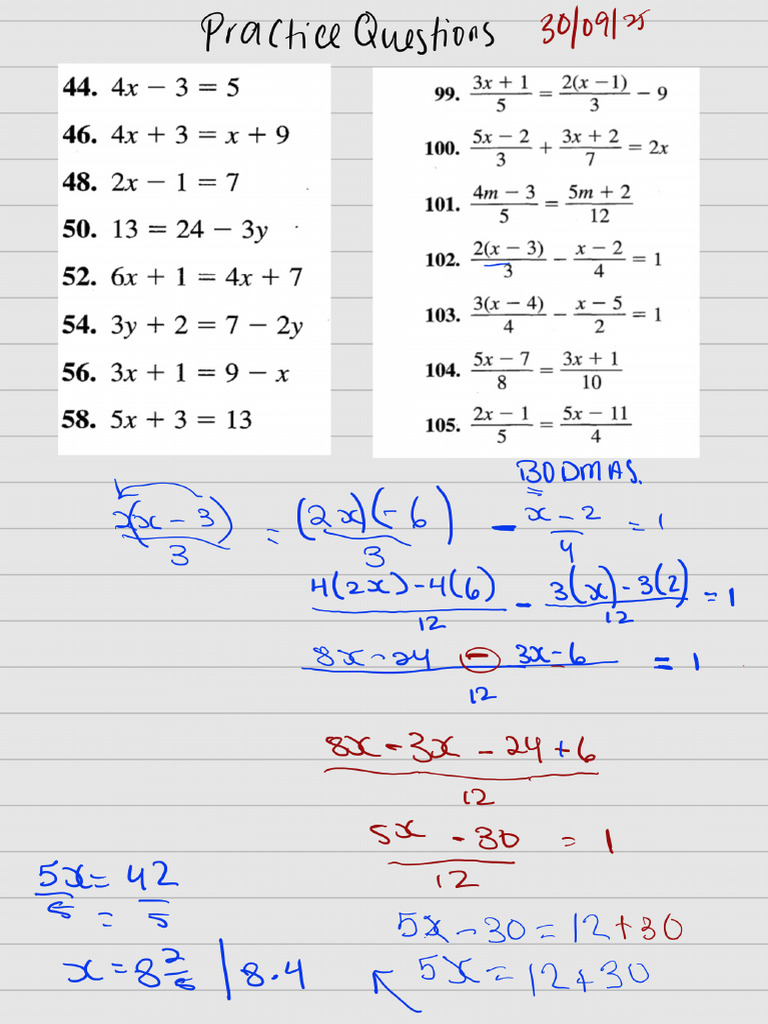 Practice Questions 30/09/25
44. 4x − 3 = 5
46. 4x + 3 = x + 9
48. 2x − 1 = 7
50. 13 = 24 − 3y
52. 6x + 1 = 4x + 7
54. 3y + 2 = 7 − 2y
56. 3x + 1 = 9 − x
58. 5x + 3 = 13
99. (3x + 1)/5 = 2(x − 1)/3 − 9
100. (5x − 2)/3 + (3x + 2)/7 = 2x
101. (4m − 3)/5 = (5m + 2)/12
102. 2(x − 3)/3 − (x − 2)/4 = 1
103. 3(x − 4)/4 − (x − 5)/2 = 1
104. (5x − 7)/8 = (3x + 1)/10
105. (2x − 1)/5 = (5x − 11)/4
BODMAS.
2(x − 3)/3 = (2x)(−6)/3 − (x − 2)/4 = 1
4(2x) − 4(6)/12 − 3(x) − 3(2)/12 = 1
8x − 24 − 3x − 6/12 = 1
8x − 3x − 24 + 6/12
5x − 30/12 = 1
5x − 30 = 12 + 30
5x = 12 + 30
5x/5 = 42/5
=
x = 8 2/5 | 8.4